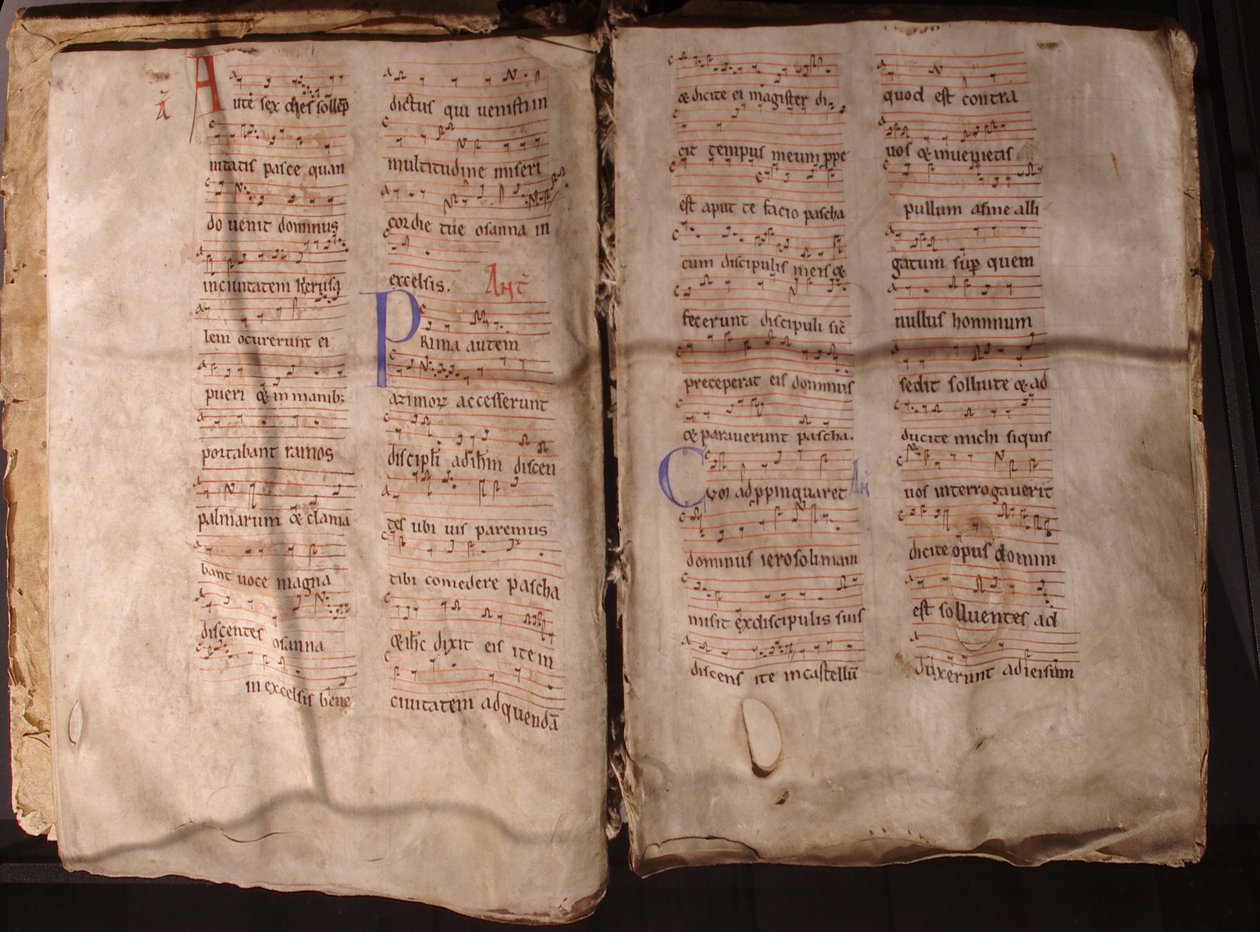 Añ
Ante sex dies sollēp
nitatis pasce quan
do uenit dominus
in ciuitatem hierusa
lem ocurerunt ei
pueri & in manib;
portabant ramos
palmarum & clama
bant uoce magna
dicentes osanna
in excelsis bene
dictus qui uenisti in
multitudine miseri
cordie tue osanna in
excelsis. Añt
Prima autem
azimoꝝ accesserunt
discipłi ad ihm dicen
tes ubi uis paremus
tibi comedere pascha
& ihc dixit eis ite in
ciuitatem ad quendā
& dicite ei magister di
cit tempus meum ppe
est aput te facio pascha
cum discipulis meis &
fecerunt discipuli sic̄
preceperat eis dominus
& parauerunt pascha.
Cum adppinquaret Añ
dominus ierosolimam
misit ex discipulis suis
dicens ite in castellū
quod est contra
uos & inuenietis
pullum asine alli
gatum sup quem
nullus hominum
sedit solluite & ad
ducite michi siquis
uos interrogauerit
dicite opus domini
est solluentes ad
duxerunt ad iesum